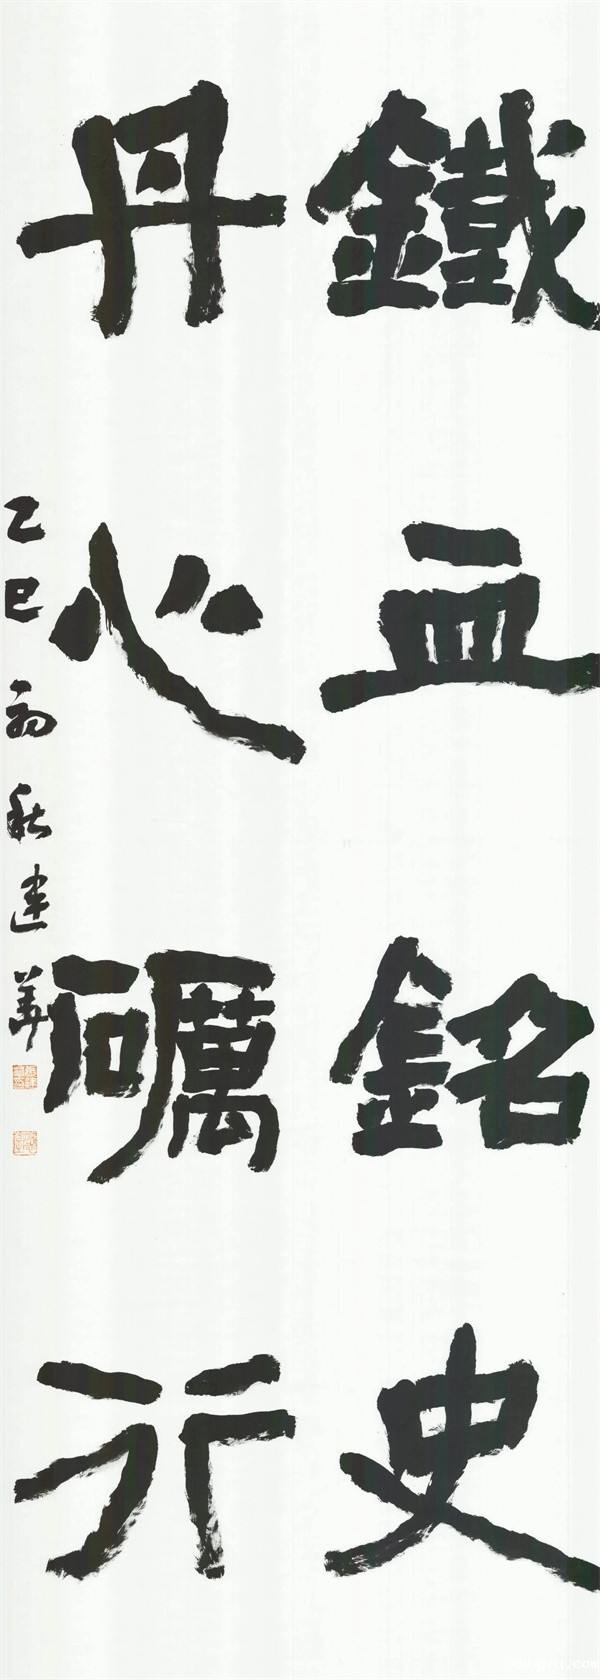 鐵血銘史
丹心礪行
乙巳初秋建華